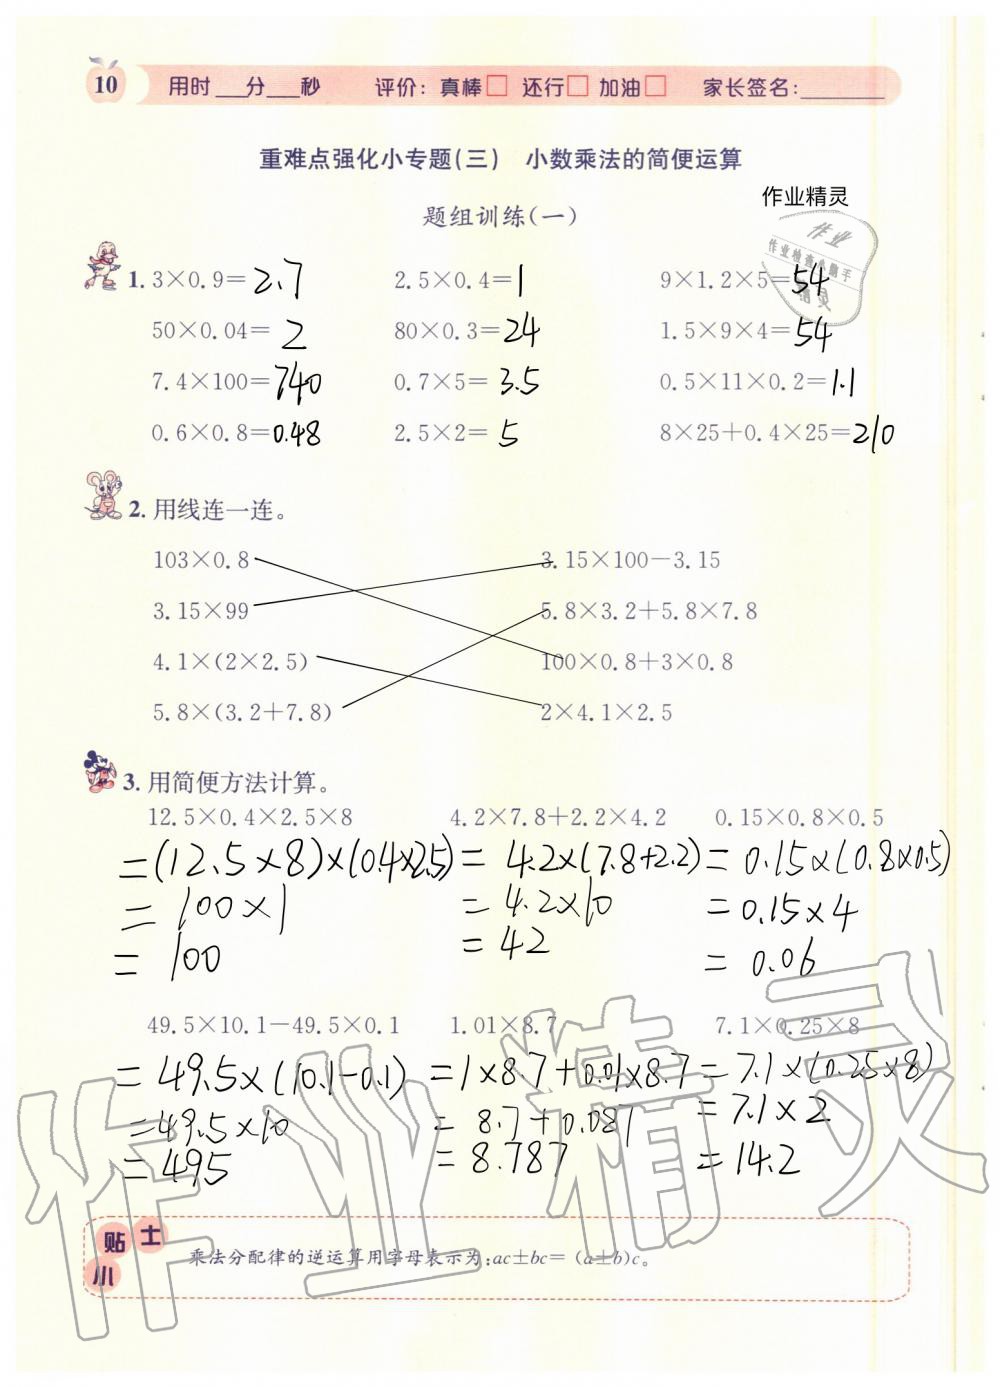 10 用时___分___秒 评价：真棒□ 还行□ 加油□ 家长签名：________
重难点强化小专题(三) 小数乘法的简便运算
作业精灵
题组训练(一)
1. 3×0.9=2.7 2.5×0.4=1 9×1.2×5=54
50×0.04=2 80×0.3=24 1.5×9×4=54
7.4×100=740 0.7×5=3.5 0.5×11×0.2=1.1
0.6×0.8=0.48 2.5×2=5 8×25+0.4×25=210
2. 用线连一连。
103×0.8 3.15×100-3.15
3.15×99 5.8×3.2+5.8×7.8
4.1×(2×2.5) 100×0.8+3×0.8
5.8×(3.2+7.8) 2×4.1×2.5
3. 用简便方法计算。
12.5×0.4×2.5×8 4.2×7.8+2.2×4.2 0.15×0.8×0.5
=(12.5×8)×(0.4×2.5) =4.2×(7.8+2.2) =0.15×(0.8×0.5)
=100×1 =4.2×10 =0.15×4
=100 =42 =0.06
49.5×10.1-49.5×0.1 1.01×8.7 7.1×0.25×8
=49.5×(10.1-0.1) =1×8.7+0.01×8.7 =7.1×(0.25×8)
=49.5×10 =8.7+0.087 =7.1×2
=495 =8.787 =14.2
小贴士
乘法分配律的逆运算用字母表示为：ac±bc=(a±b)c。
作业精灵